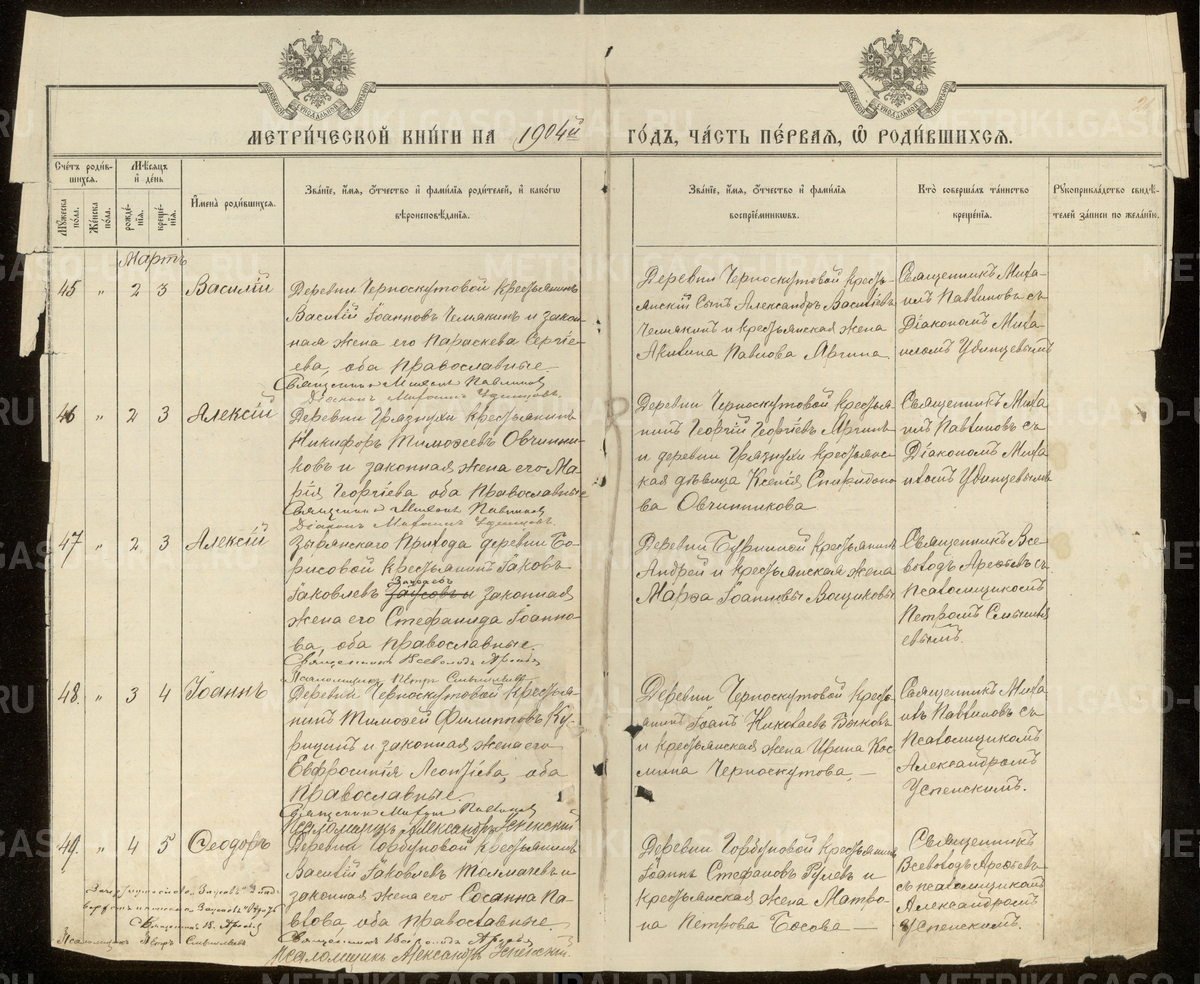 МЕТРИ́ЧЕСКОЙ КНИ́ГИ НА 1904й ГО́ДЪ, ЧА́СТЬ ПЕ́РВАЯ, Ѡ҆ РОДИ́ВШИХСѦ.
Сче́тъ роди́в-
шихсѧ.
Мꙋ́жеска по́ла.
Же́нска по́ла.
Мѣ́сѧцъ
и҆ де́нь
рожде́-
нїѧ.
креще́-
нїѧ.
И҆мена̀ роди́вшихсѧ.
Зва́нїе, и҆́мѧ, ѻ҆́тчество и҆ фами́лїѧ роди́телей, и҆ како́гѡ
вѣроисповѣ́данїѧ.
Зва́нїе, и҆́мѧ, ѻ҆́тчество и҆ фами́лїѧ
воспрїе́мникѡвъ.
Кто̀ соверша́лъ та́инство
креще́нїѧ.
Рꙋкоприкла́дство свидѣ́-
телей за́писи по жела́нїю.
Мартъ
45 „ 2 3 Василій
Деревни Черноскутовой крестьянинъ
Василій Іоанновъ Чемякинъ и закон
ная жена его Параскева Сергіе-
ева, оба православные.
Священникъ Михаилъ Павлиновъ
Діаконъ Михаилъ Удинцовъ.
Деревни Черноскутовой кресть-
янскій сынъ Александръ Васильевъ
Чемякинъ и крестьянская жена
Акилина Павлова Аргина
Священникъ Миха-
илъ Павлиновъ съ
Діакономъ Миха-
иломъ Удинцевымъ
46 „ 2 3 Алексій
Деревни Грязнухи крестьянинъ
Никифоръ Тимоѳеевъ Овчинни-
ковъ и законная жена его Ма-
рія Георгіева оба православные
Священникъ Михаилъ Павлиновъ
Діаконъ Михаилъ Удинцовъ.
Деревни Черноскутовой крестья-
нинъ Георгій Георгіевъ Аргинъ
и деревни Грязнухи крестьянс-
кая дѣвица Ксенія Спиридоно
ва Овчинникова
Священникъ Миха-
илъ Павлиновъ съ
Діакономъ Миха-
иломъ Удинцевымъ
47 „ 2 3 Алексій
Зырянскаго прихода деревни Бо-
рисовой крестьянинъ Іаковъ
Іаковлевъ законная
жена его Стефанида Іоанно-
ва, оба православные.
Священникъ Всеволодъ
Псаломщикъ Петръ
Деревни Буриной крестьянинъ
Андрей и крестьянская жена
Марѳа Іоанновы
Священникъ Все-
володъ съ
Псаломщикомъ
Петромъ
48. „ 3 4 Іоаннъ
Деревни Черноскутовой крестья-
нинъ Тимоѳей Филипповъ Ку-
рицинъ и законная жена его
Евфросинія Леонтіева, оба
православные.
Священникъ Михаилъ Павлиновъ
Псаломщикъ Александръ Успенскій
Деревни Черноскутовой кресть-
янинъ Іоаннъ Николаевъ Быковъ
и крестьянская жена Ирина Кос
мина Черноскутова.
Священникъ Миха-
илъ Павлиновъ съ
Псаломщикомъ
Александромъ
Успенскимъ.
49. „ 4 5 Ѳеодоръ
Деревни Горбуновой крестьянинъ
Василій Іаковлевъ Толмачевъ и
законная жена его Сосанна Па-
влова, оба православные.
Священникъ Всеволодъ
Псаломщикъ Александръ Успенскій.
Деревни Горбуновой крестьянинъ
Іоаннъ Стефановъ Рулевъ и
крестьянская жена Матро-
на Петрова Босова
Священникъ
Всеволодъ
съ псаломщикомъ
Александромъ
Успенскимъ.
Псаломщикъ Петръ
METRIKI.GASO-URAL.RU